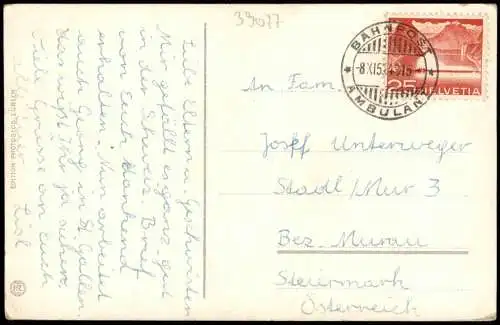 39077
Liebe Eltern u. Geschwister
Mir gefällt es ganz gut
in der Schweiz. Brief
von Euch dankend
erhalten. Nun arbeitet
auch Georg in St. Gallen.
Das wißt Ihr ja sicher.
Viele Grüsse an Euch
Lisl
BAHNPOST
AMBULANT
HELVETIA
25
An Fam.
Josef Unterweger
Stadl/Mur 3
Bez. Murau
Steiermark
Österreich